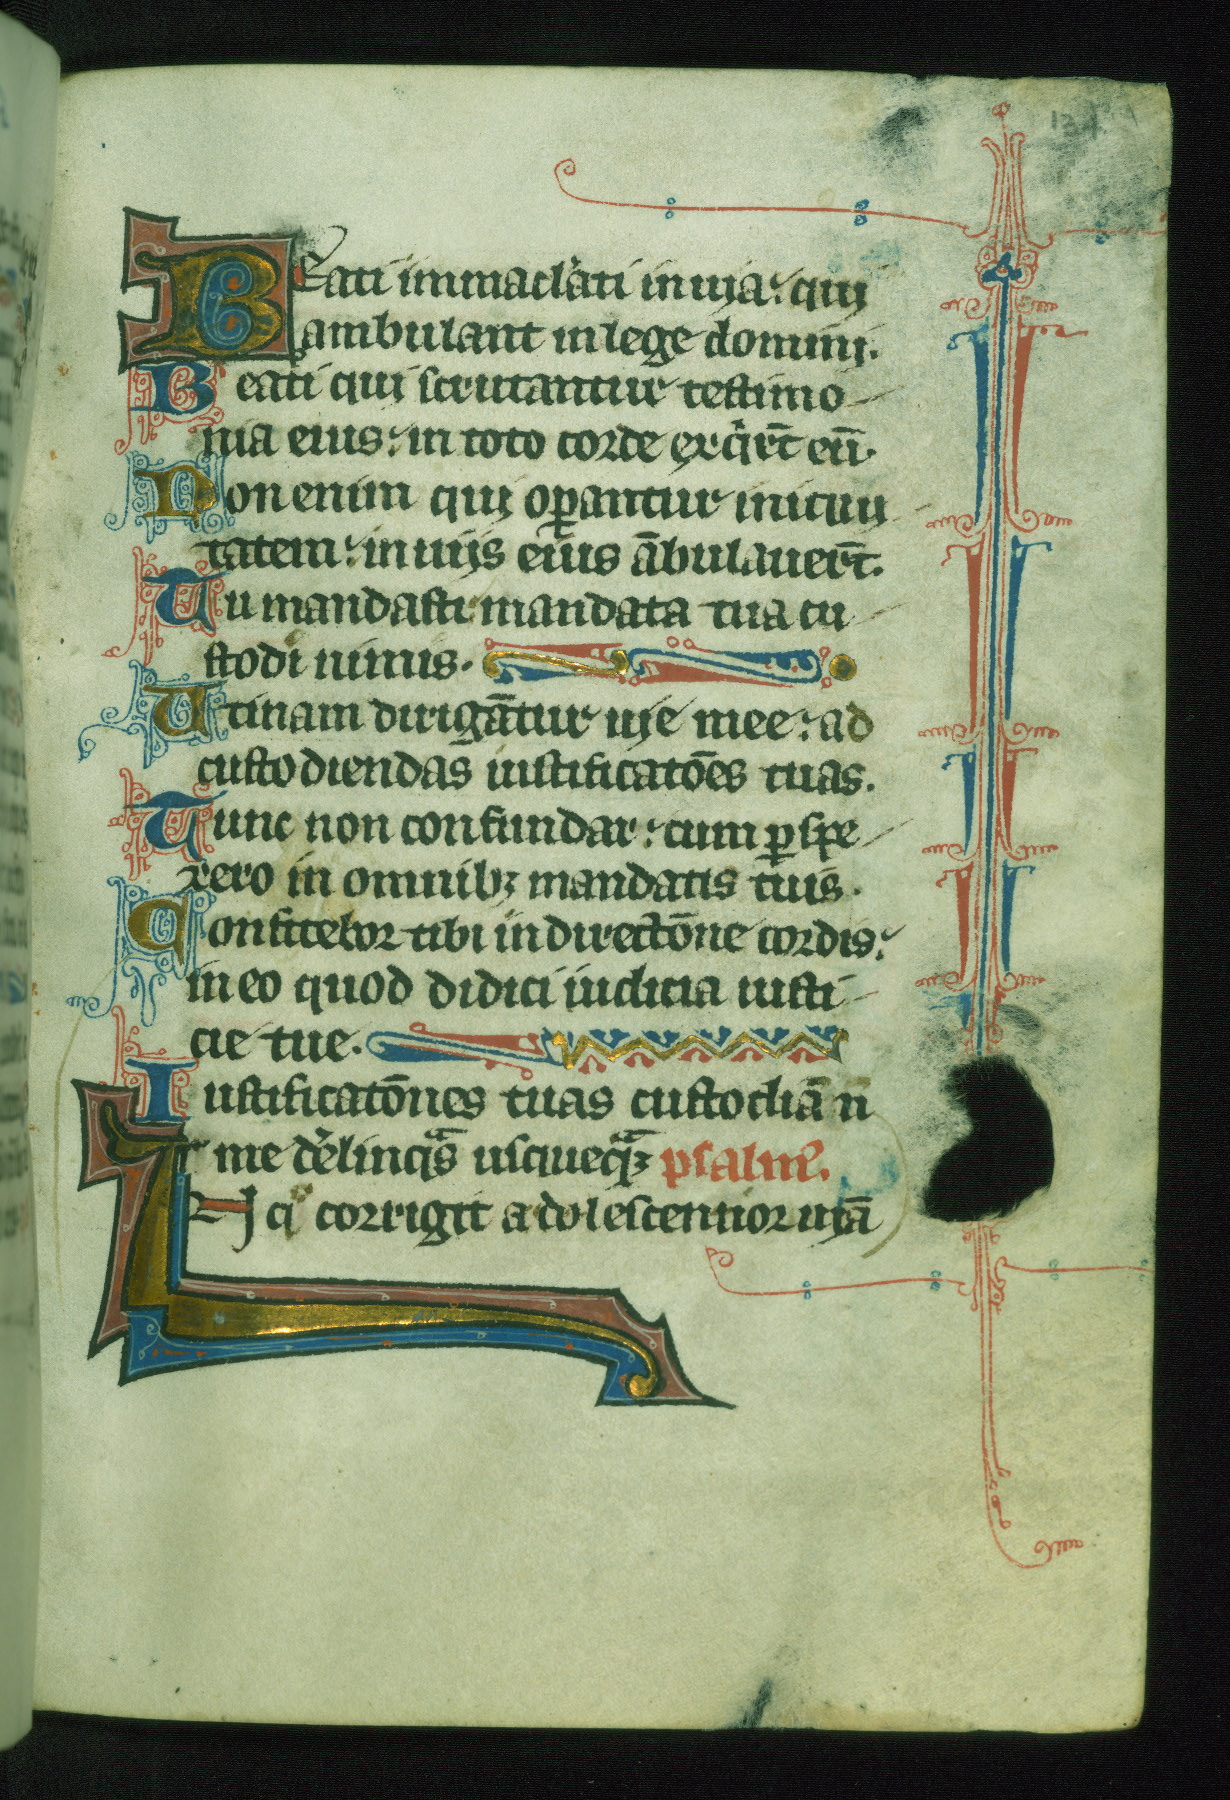 Beati immacl'ati in uia: qui
ambulant in lege domini.
Beati qui scrutantur testimo
nia eius: in toto corde exq'rēt eū.
Non enim qui operantur iniqui
tatem: in uijs eius ābulauer̄t.
Tu mandasti mandata tua cu
stodi nimis.
Utinam dirigātur uie mee: ad
custodiendas iustificatōes tuas.
Tunc non confundar: cum ꝑspe
xero in omnibꝫ mandatis tuis.
Confitebor tibi in directōne cordis:
in eo quod didici iudicia iusti
cie tue.
Iustificatōnes tuas custodiā n̄
me d'elinqᵃs usquequaꝫ psalm̄.
In q° corrigit adolescentior uiā